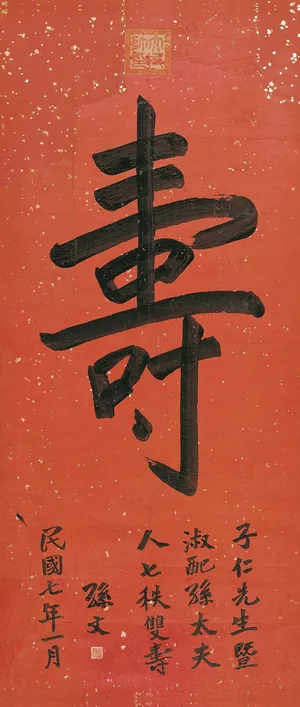 壽
子仁先生暨
淑配孫太夫
人七秩雙壽
孫文
民國七年一月